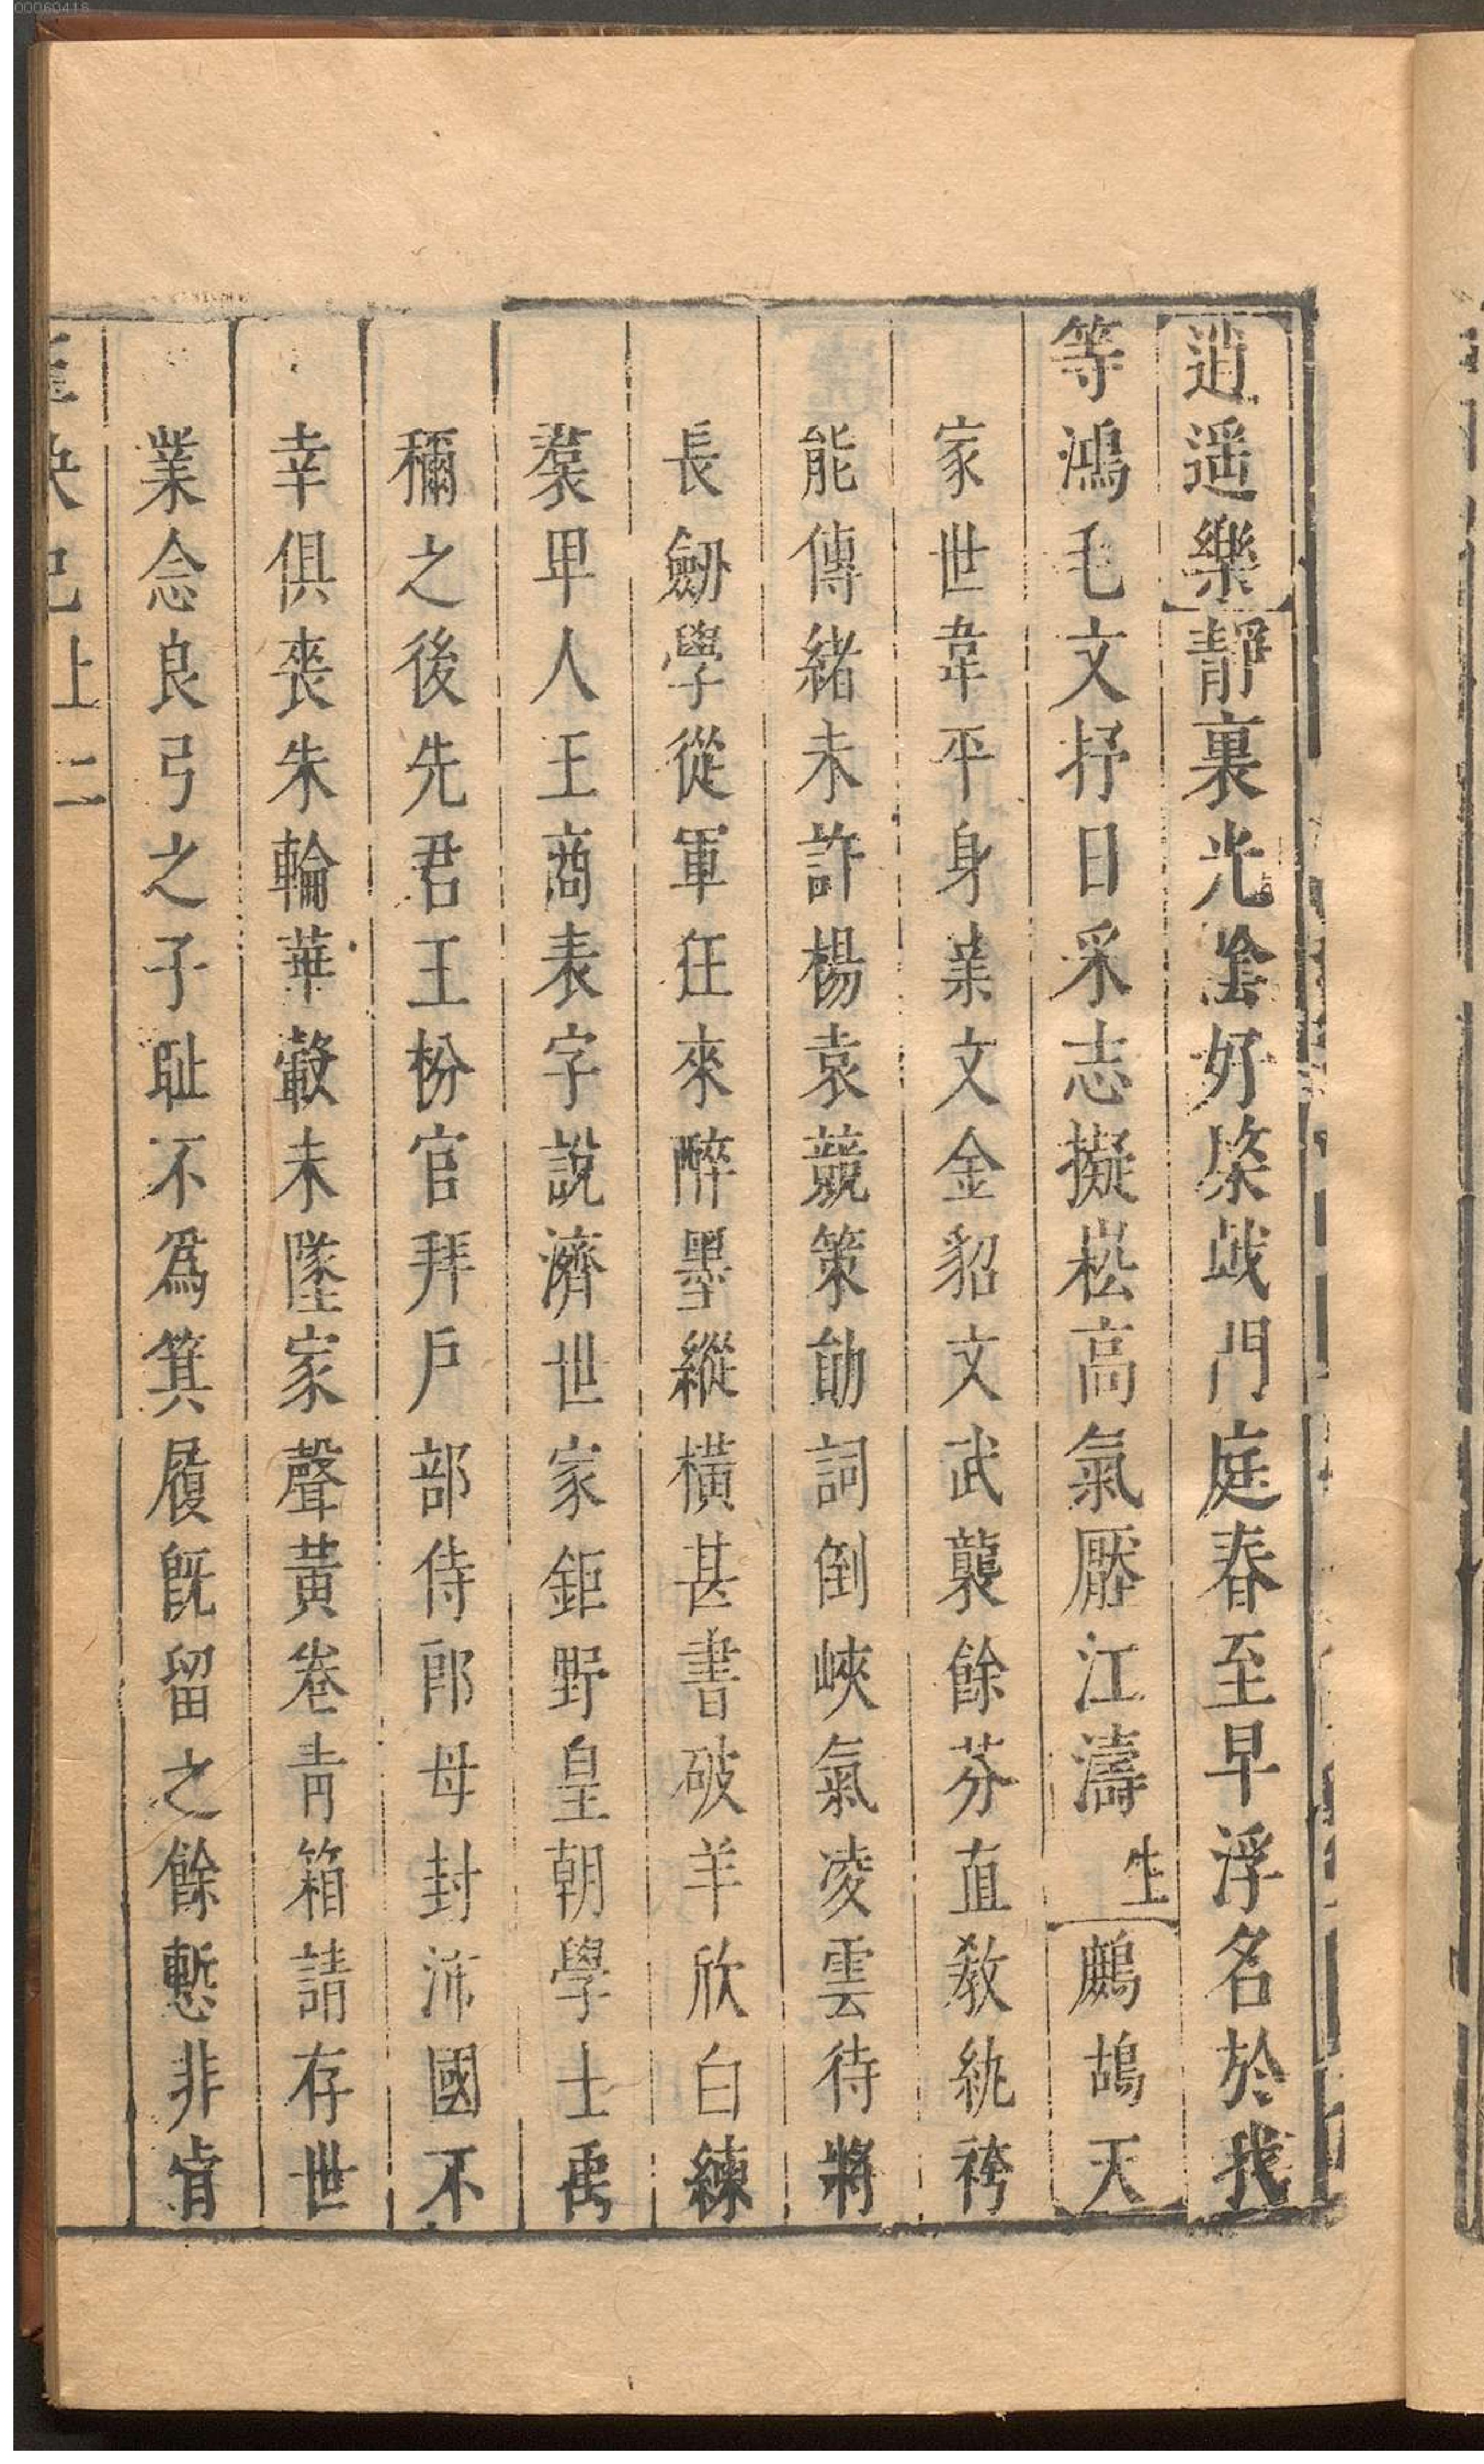 逍遥樂靜裏光隂好棨戟門庭春至早浮名於我
等鴻毛文抒日采志擬崧高氣壓江濤生鷓鴣天
家世韋平身業文金貂文武襲餘芬直教紈袴
能傳緒未許楊袁競策勛詞倒峽氣凌雲待將
長劒學從軍徃來醉墨縱橫甚書破羊欣白練
裠畢人王商表字說濟世家鉅野皇朝學士禹
稱之後先君王枌官拜戸部侍郎母封沛國不
幸俱喪朱輪華轂未墜家聲黃卷青箱請存世
業念良弓之子耻不爲箕履旣留之餘慙非肯
上二
00060418